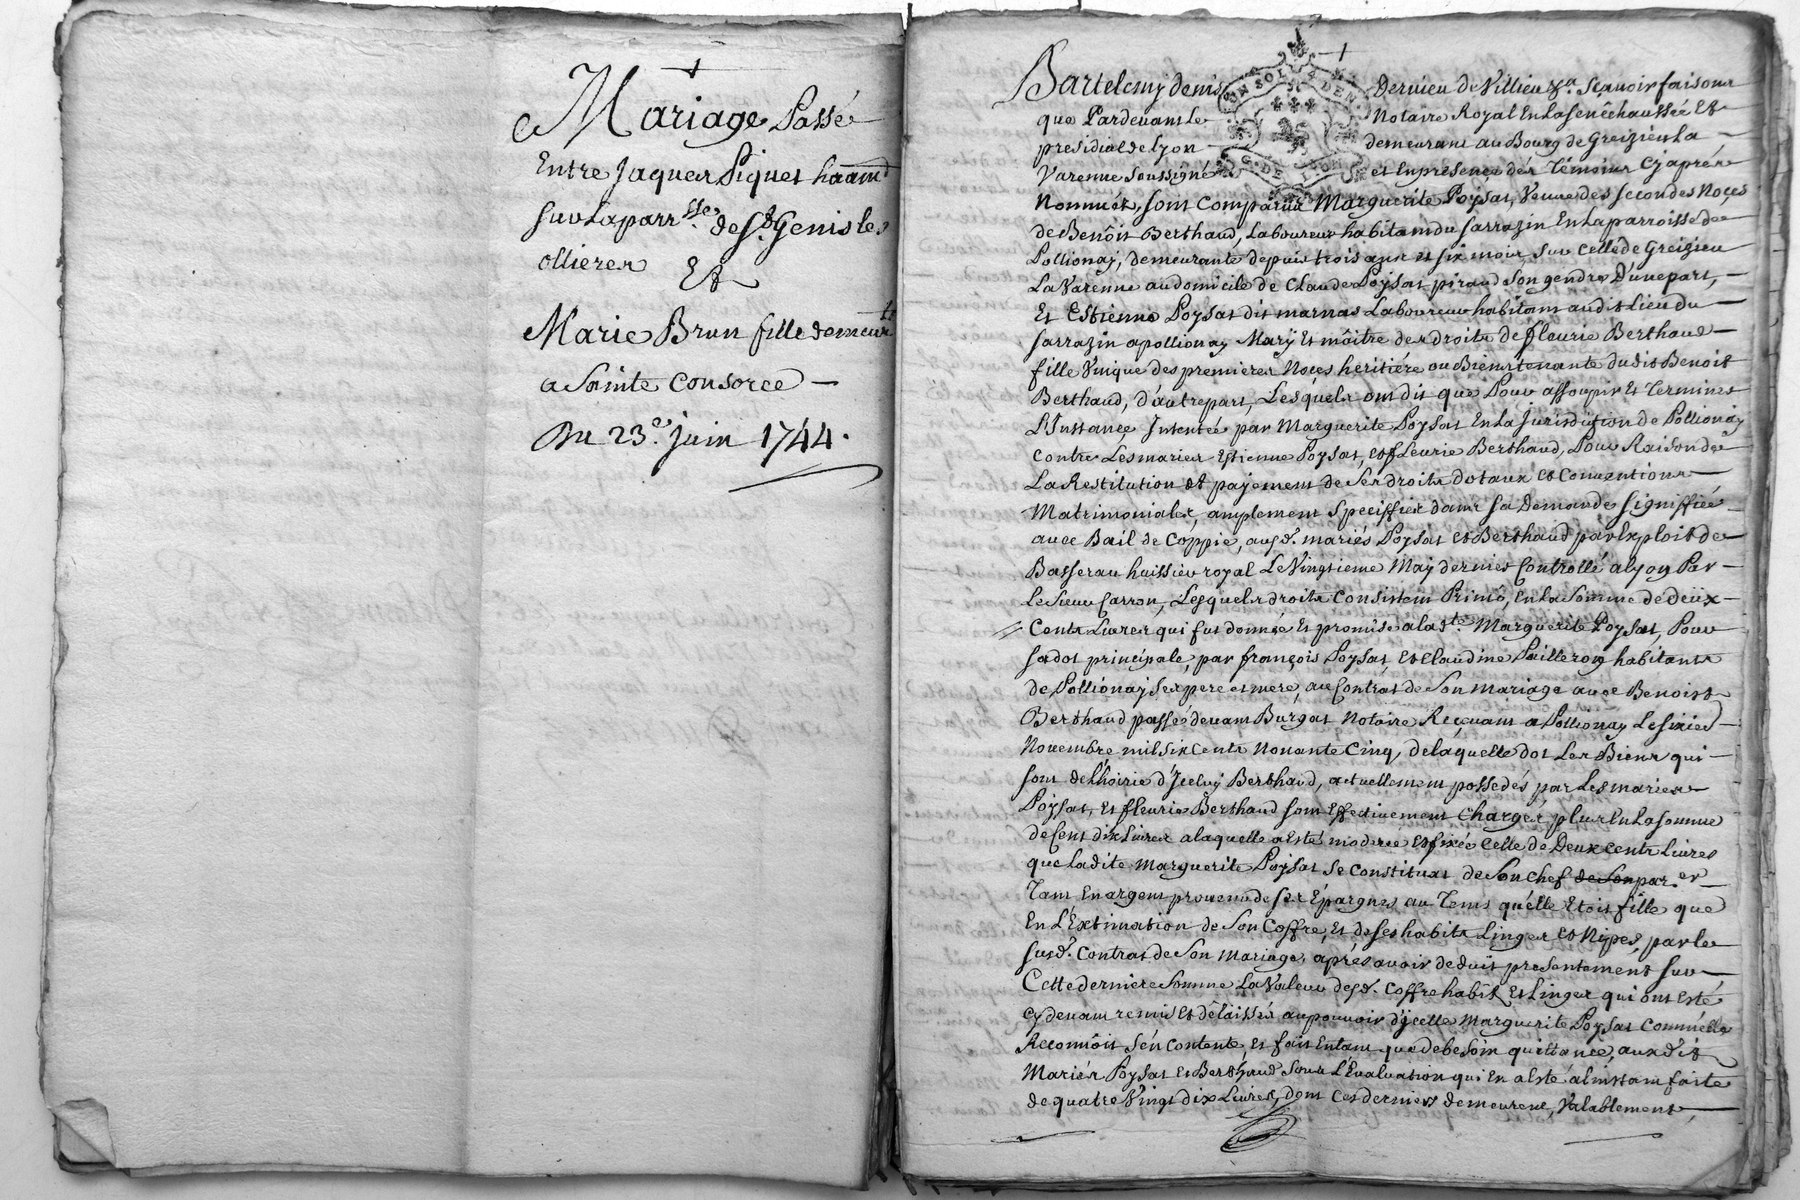 Mariage Passé
Entre Jaques Piquet haânt
sur La parr.sse de St. Genis les
ollieres Et
Marie Brun fille demeur.te
a Sainte Consorce —
Du 23.e juin 1744.
Bartelemy denis Dervieu de Villieu &a. Sçavoir faisons
que Pardevant Le Notaire Royal En La Senêchaussée Et
presidial de Lyon demeurant au Bourg de Greizieu La
Varenne soussigné et En presence des Témoins Cy aprés
Nommés, sont Comparus Marguerite Poysat, Veuve des secondes Noçes
de Benôit Berthaud, Laboureur habitant du sarrazin En La parroisse de
Pollionay, demeurante depuis trois ans et six mois, sur celle de Greizieu
La Varenne au domicile de Claude Poysat piraud son gendre D'une part,
Et Estienne Poysat dit marnas Laboureur habitant audit Lieu du
sarrazin a pollionay Mary Et mâitre des droits de fleurie Berthaud
fille Vnique des premieres Noçes heritiére ou Biens tenante dudit Benoit
Berthaud, d'autre part, Lesquels ont dit que Pour assoupir Et Terminer
L'Instance Intentée par Marguerite Poysat En La Jurisdiction de Pollionay
contre Les mariés Estienne Poysat, et fleurie Berthaud, Pour Raison de
La Restitution et payement de ses droits dotaux et Conventions
Matrimoniales, amplement speciffiés dans sa Demande signiffiée
avec Bail de Coppie, ausd. mariés Poysat et Berthaud par Exploit de
Basserau huissier royal Le Vingtieme May dernier Controllé a Lyon Par
Le Sieur Carron, Lesquels droits Consistent Primò, En La Somme de deux
Cents Livres qui fut donnée et promise a la d.te Marguerite Poysat, Pour
sa dot principale, par françois Poysat, et Claudine Pailleron habitants
de Pollionay ses pere et mere, au Contrat de Son mariage avec Benoist
Berthaud passé devant Burgat Notaire Reçevant a Pollionay Le sixie.
Novembre mil six Cents Nonante Cinq, de Laquelle dot Les Biens qui
sont de L'hoirie d'Icelluy Berthaud, actuellement possedés par Les mariés
Poysat, Et fleurie Berthaud sont Effectivement Chargés, plus En La somme
de Cent dix Livres a laquelle a Esté moderée et fixée Celle de Deux Cents Livres
que Ladite Marguerite Poysat se Constituat de Son Chef de Son par.er
Tant En argent provenu de ses Épargnes au Tems quélle Etoit fille que
En L'Extimation de Son Coffre, Et de ses habits Linges et Nipes, par le
susd. Contrat de Son Mariage, aprés avoir deduit presentement sur
Cette derniere Somme La Valeur desd. Coffre habits Et Linges qui ont Esté
cy devant remis Et délaissés au pouvoir d'jcelle Marguerite Poysat Comme Elle
Reconnôit s'en Contente, et fait En tant que de besoin quittance, ausdits
Mariés Poysat et Berthaud sous L'Evaluation qui En a Esté a l'instant faite
de quatre Vingt dix Livres, dont Ces derniers demeurent, Valablement,